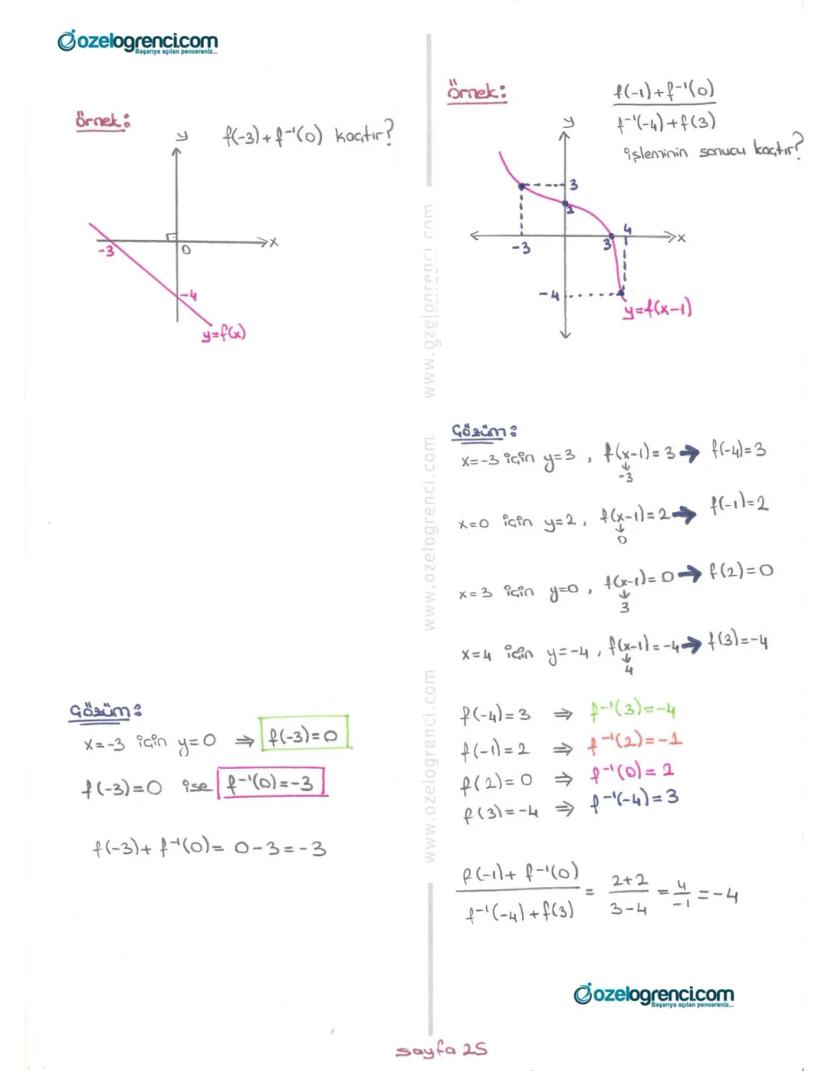 özelogrenci.com
Başarıya açılan pencereniz...
Örnek:
f(-3)+f⁻¹(0) kaçtır?
y
x
-3
0
-4
y=f(x)
Gözüm:
x=-3 için y=0 ⇒ f(-3)=0
f(-3)=0 ise f⁻¹(0)=-3
f(-3)+f⁻¹(0)= 0-3=-3
www.ozelogrenci.com www.ozelogrenci.com www.ozelogrenci.com
Örnek:
f(-1)+f⁻¹(0)
f⁻¹(-4)+f(3)
işleminin sonucu kaçtır?
y
3
2
-3
3
4
x
-4
y=f(x-1)
Çözüm:
x=-3 için y=3, f(x-1)=3 → f(-4)=3
-3
x=0 için y=2, f(x-1)=2 → f(-1)=2
0
x=3 için y=0, f(x-1)=0 → f(2)=0
3
x=4 için y=-4, f(x-1)=-4 → f(3)=-4
4
f(-4)=3 ⇒ f⁻¹(3)=-4
f(-1)=2 ⇒ f⁻¹(2)=-1
f(2)=0 ⇒ f⁻¹(0)=2
f(3)=-4 ⇒ f⁻¹(-4)=3
f(-1)+f⁻¹(0) / f⁻¹(-4)+f(3) = 2+2 / 3-4 = 4 / -1 = -4
özelogrenci.com
Başarıya açılan pencereniz...
sayfa 25